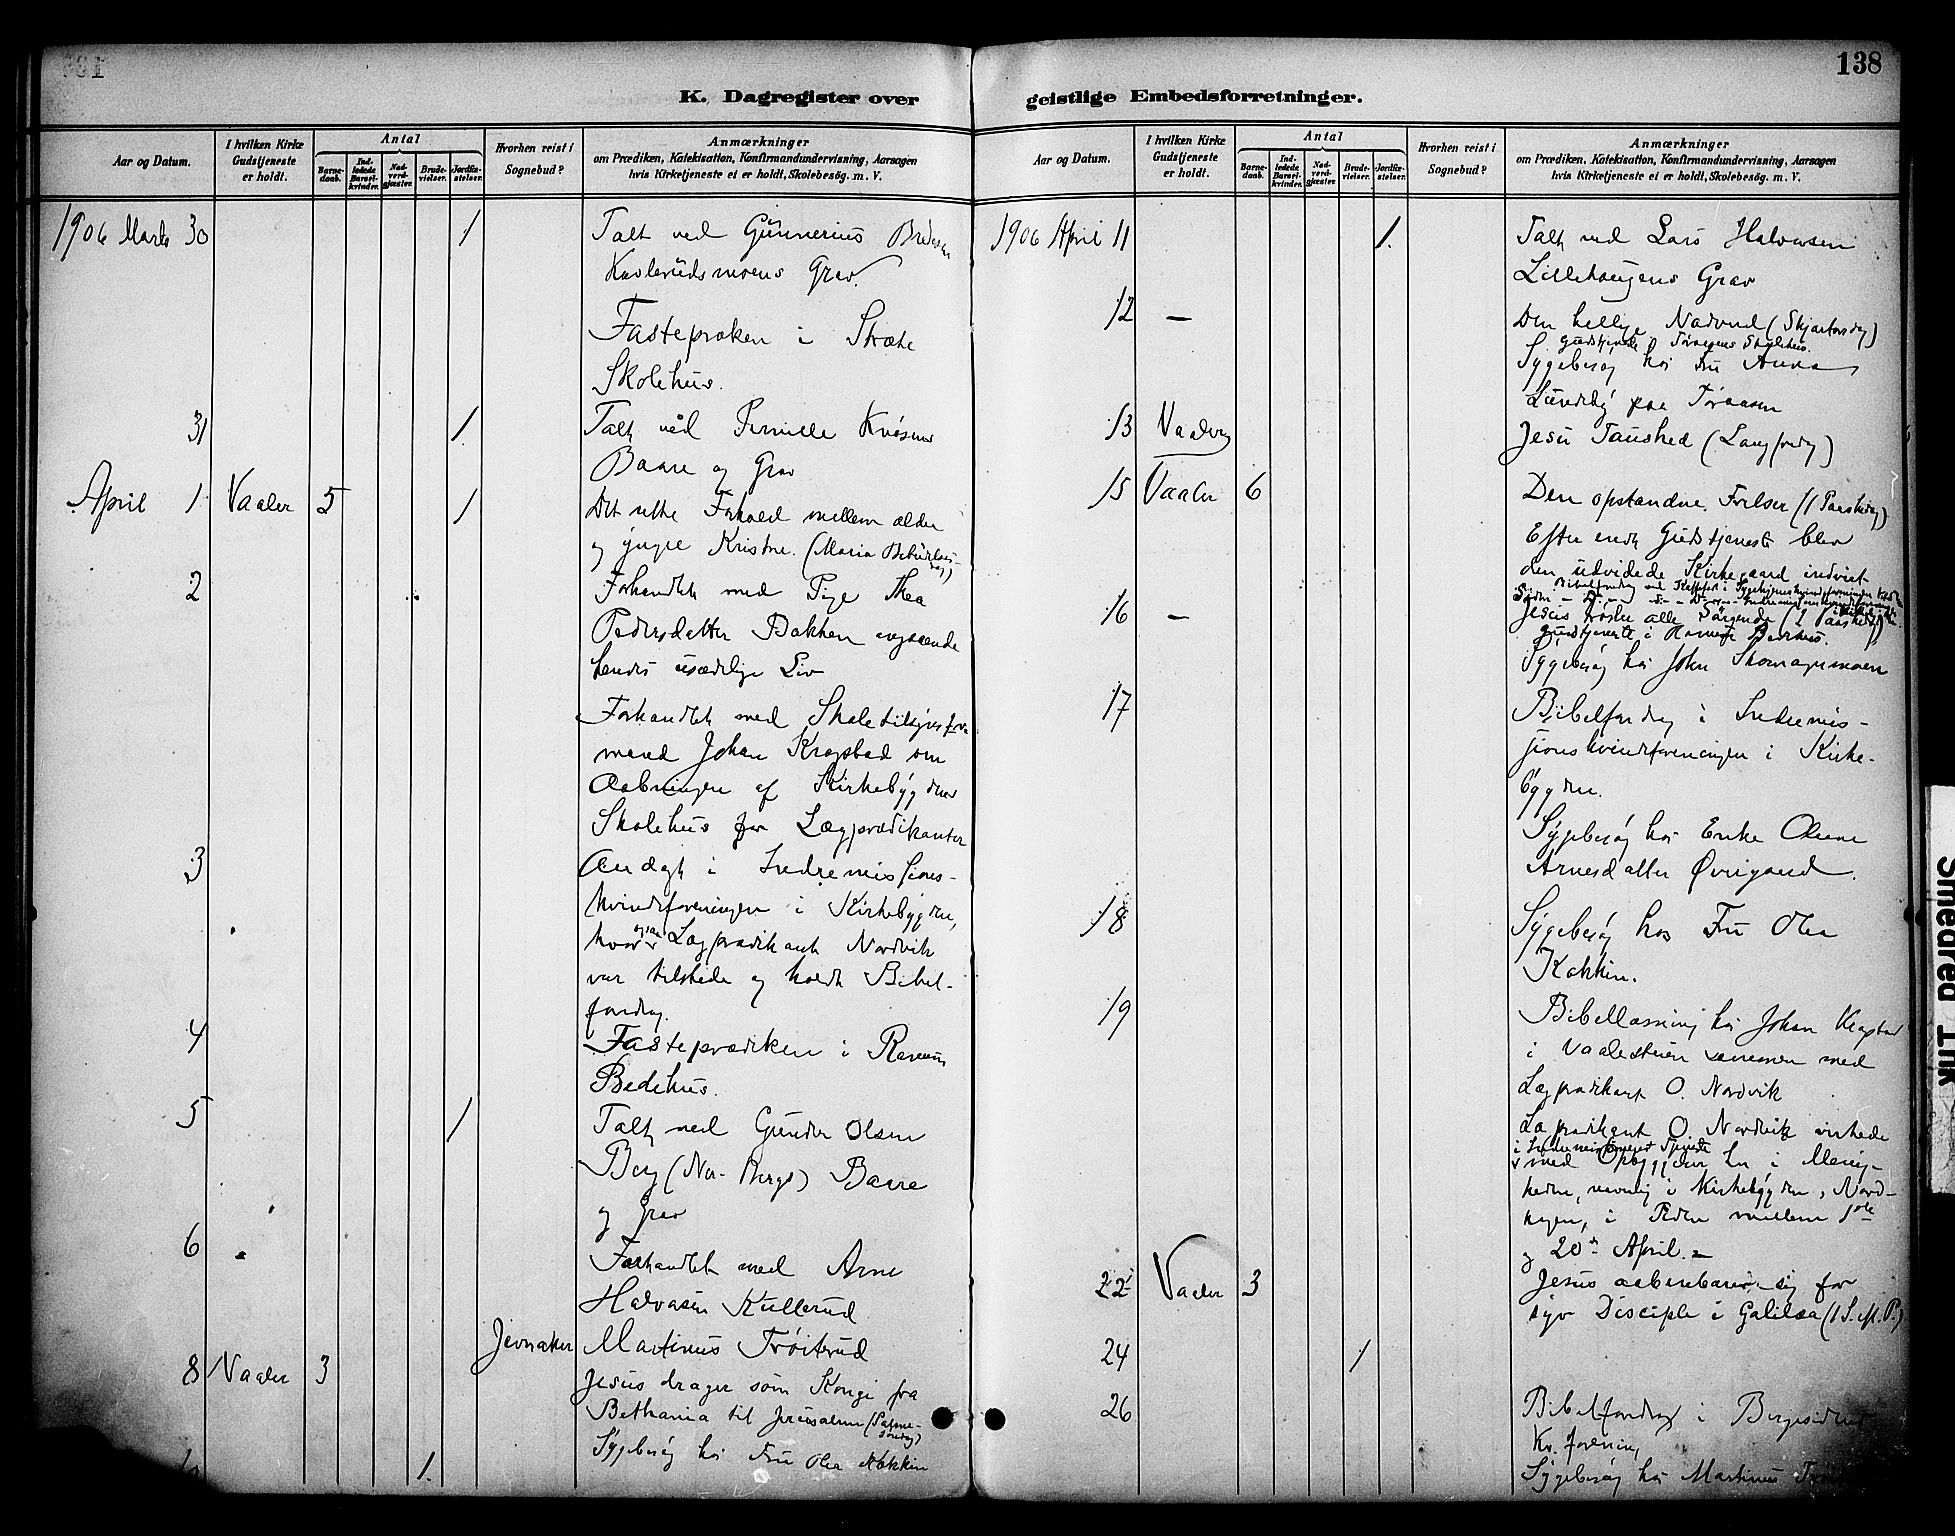 138
K. Dagregister over geistlige Embedsforretninger.
Aar og Datum.
I hvilken Kirke Gudstjeneste er holdt.
Antal
Barne-daab.
Ind-ledede Barsel-kvinder.
Nad-verd-gjæster.
Brude-vielser.
Jordfæ-stelser.
Hvorhen reist i Sognebud?
Anmærkninger
om Prædiken, Katekisation, Konfirmandundervisning, Aarsagen
hvis Kirketjeneste ei er holdt, Skolebesøg. m. V.
1906 Marts 30 1 Talt ved Gunnerius
Grav.
Fastepræken i Stræte
Skolehus.
31 1 Talt ved Pernille
Baare og Grav
April 1 Vaaler 5 1 Det rette Forhold mellem ældre
og yngre Kristne. (Maria Bebudelses-
dag)
2 Forhandlet med Pige Thea
Pedersdatter Bakken angaaende
hendes usædelige Liv
Forhandlet med Skoletilsynsfor-
mand Johan Krogstad om
Aabningen af Kirkebygdens
Skolehus for Lægprædikanter
3 Andagt i Indremissions-
kvindeforeningen i Kirkebygden,
hvor ogsaa Lægprædikant Nordvik
var tilstede og holdt Bibel-
foredrag.
4 Fasteprædiken i
Bedehus.
5 1 Talt ved Gunder Olsen
Berg (Nor-Bergs) Baare
og Grav
6 Forhandlet med Arne
Halvorsen Kullerud
Jevnaker Martinus Trøiterud
8 Vaaler 3 Jesus drager som Konge fra
Bethania til Jerusalem (Palme-
søndag)
Sygebesøg hos Fru Olea Kokkin
10 1.
Aar og Datum.
I hvilken Kirke Gudstjeneste er holdt.
Antal
Barne-daab.
Ind-ledede Barsel-kvinder.
Nad-verd-gjæster.
Brude-vielser.
Jordfæ-stelser.
Hvorhen reist i Sognebud?
Anmærkninger
om Prædiken, Katekisation, Konfirmandundervisning, Aarsagen
hvis Kirketjeneste ei er holdt, Skolebesøg. m. V.
1906 April 11 1. Talt ved Lars Halvorsen
Lillehaugens Grav
12 — Den hellige Nadverd (Skjærtorsdag)
Gudstjeneste i Skolehus.
Sygebesøg hos Fru Anna
Lundeby paa Toraasen
13 Vaaler Jesu Taushed (Langfredag)
15 Vaaler 6 Den opstandne Frelser (1 Paaskedag)
Efter endt Gudstjeneste blev
den udvidede Kirkegaard indviet
16 — Jesus trøster alle Sørgende (2 Paaskedag)
Gudstjeneste i Bedehus.
Sygebesøg hos John Skomagermoen
17 Bibelforedrag i Indremis-
sionskvindeforeningen i Kirke-
bygden.
Sygebesøg hos Enke Oleane
Arnesdatter Øvergaard.
18 Sygebesøg hos Fru Olea
Kokkin.
19 Bibellæsning hos Johan Krogstad
i Vaalerstuen sammen med
Lægprædikant O. Nordvik
Lægprædikant O. Nordvik virkede
i Indremissionens Tjeneste
med Opbyggelser her i Menig-
heden, navnlig i Kirkebygden, Nord-
hagen, i Tiden mellem 1ste
og 20de April.
22 Vaaler 3 Jesus aabenbarer sig for
syv Disciple i Galilæa (1 S. eft. P.)
24 1
26 Bibelforedrag i Bergesidens
Kv. forening
Sygebesøg hos Martinus
Smeared Ink